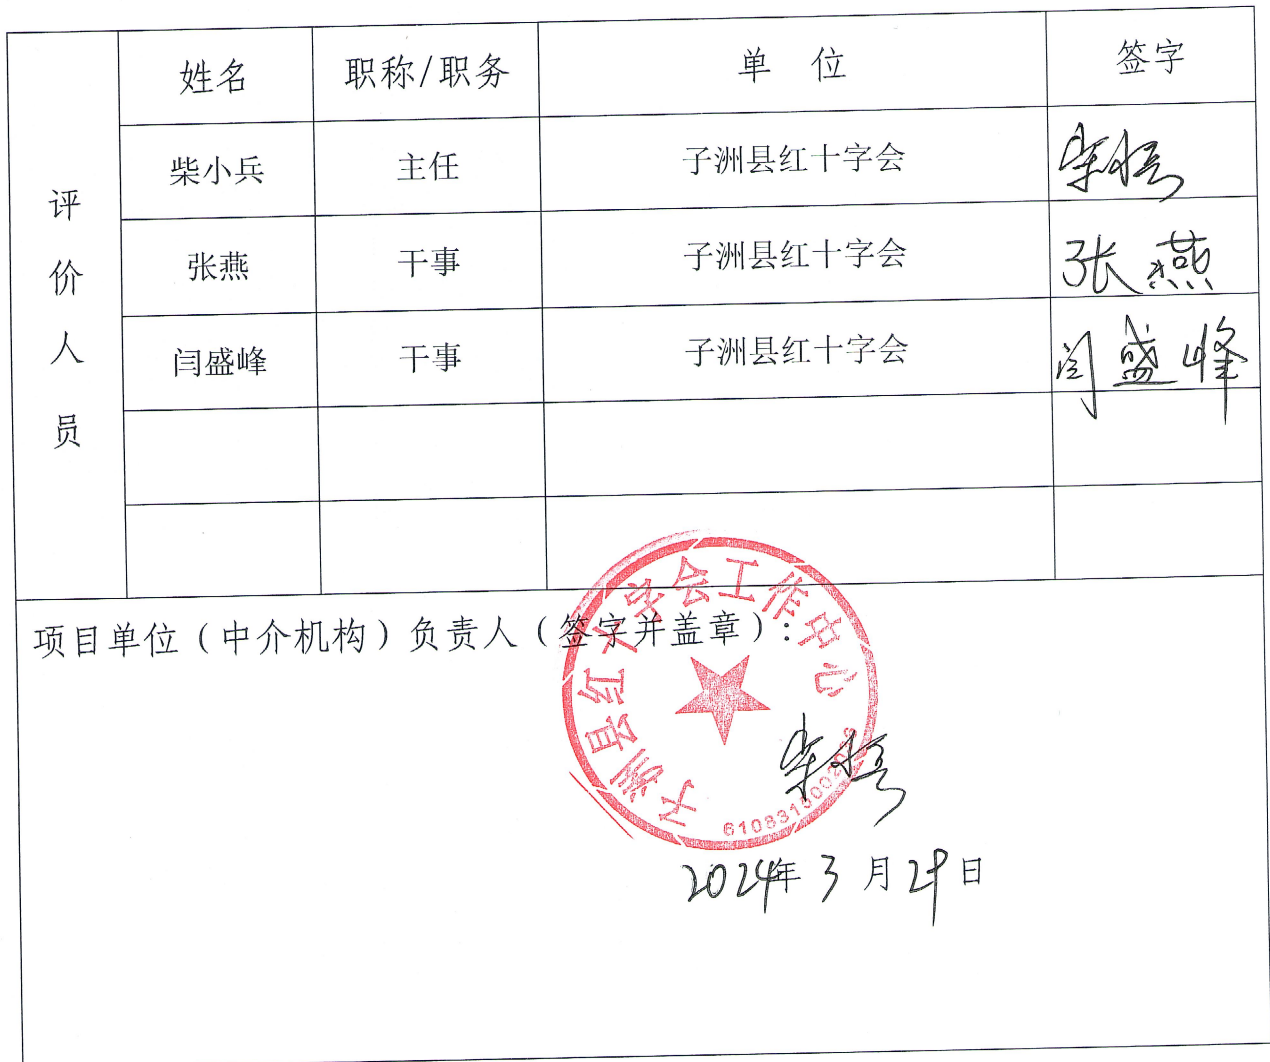 姓名 职称/职务 单 位 签字
评价人员
柴小兵 主任 子洲县红十字会
张燕 干事 子洲县红十字会 张燕
闫盛峰 干事 子洲县红十字会 闫盛峰
项目单位（中介机构）负责人（签字并盖章）：
子洲县红十字会工作中心
2024年3月29日